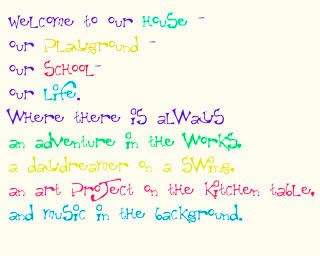 Welcome to our House -
our Playground -
our School-
our Life.
Where there is always
an adventure in the works,
a daydreamer on a swing,
an art project on the kitchen table,
and music in the background.